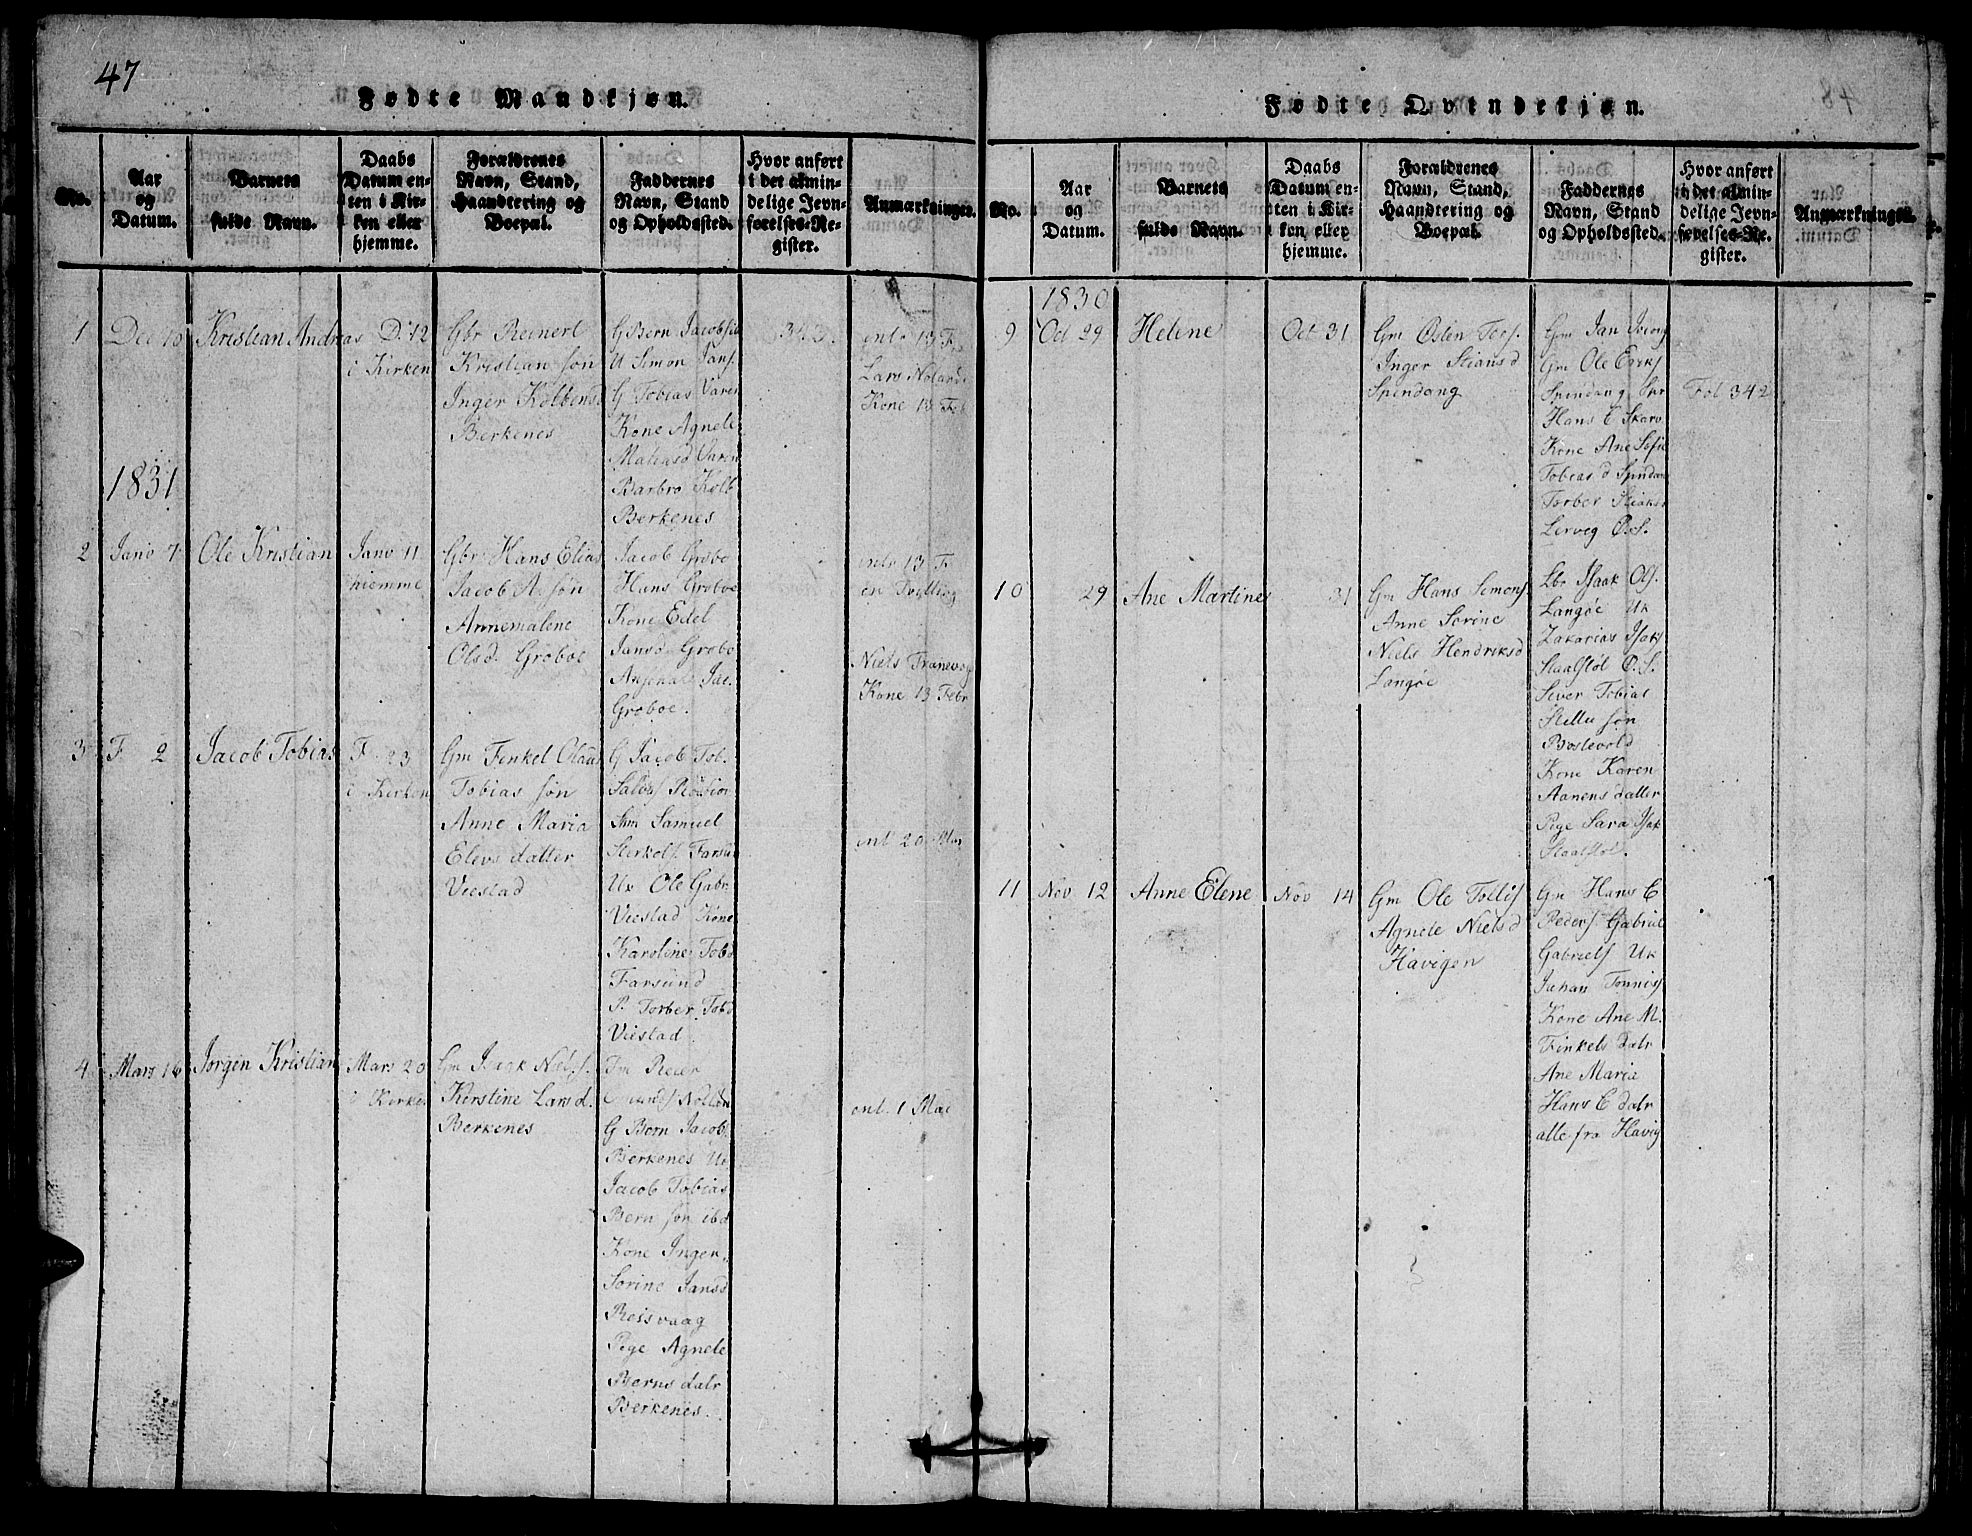 47
Fødte Mandkjøn.
No.
Aar
og
Datum.
Barnets
fulde Navn.
Daabs
Datum en-
ten i Kir-
ken eller
hjemme.
Forældrenes
Navn, Stand,
Haandtering og
Boepæl.
Faddernes
Navn, Stand
og Opholdssted.
Hvor anført
i det almin-
delige Jevn-
førelses-Re-
gister.
Anmærkninger.
1
Dec 10
Kristian Andreas
D. 12
i Kirken
Gbr Reinert
Kristian søn
Inger Kolbensd
Berkenes
G Bern Jacobsen
U Simon Jans.
G Tobias Varen
Kone Agnele
Matiasd Varen
Barbro Kolb
Berkenes
343.
entr 13 F
Lars Nolands
Kone 13 Feb
1831
2
Janv 7
Ole Kristian
Janv 11
hiemme
Gbr Hans Elias
Jacob A. søn
Annemalene
Olsd. Groboe
Jacob Grobo
Hans Groboe
Kone Edel
Jansd Grobo
Anjenal Jac.
Groboe.
entr 13 F
en Tvilling
Niels Tranevog
Kone 13 Febr
3
F 2
Jacob Tobias
F 23
i Kirken
Gm Tenkel Olaus
Tobias søn
Anne Maria
Elevs datter
Viestad
G Jacob Tob.
Samuel
Sterkols. Farsun
Ux Ole Gabr.
Viestad Kone
Karoline Tobd
Farsund
P. Torber Tobd
Viestad
ent 20 Mar
4
Mars 16
Jørgen Kristian
Mars 20
i Kirke.
Gm Isaak Niels.
Kerstine Larsd.
Berkenes
Reier
G Bern Jacobs.
Berkenes Uk
Jacob Tobias
Bern søn ibd
Kone Inger
Sorine Jansd
Reisvaag
Pige Agnele
Berns datr
Berkenes.
ent. 1 Mai
Fødte Qvindekjøn.
No.
Aar
og
Datum.
Barnets
fulde Navn.
Daabs
Datum en-
ten i Kir-
ken eller
hjemme.
Forældrenes
Navn, Stand,
Haandtering og
Boepæl.
Faddernes
Navn, Stand
og Opholdssted.
Hvor anført
i det almin-
delige Jevn-
førelses-Re-
gister.
Anmærkninger.
1830
9
Oct 29
Helene
Oct 31
Gm Osten Tors.
Inger Stiansd
Spindang
Gm Jan
Gm Ole Eriks
Spindang Spr
Hans E Skarv
Kone Ane Sofie
Tobias d Spindan
Torber
Lervig O.S.
Fol 342
10
29
Ane Martine
31
Gm Hans Simons.
Anne Sorine
Niels Hendriksd
Langøe
Lbr Isaak Ols.
Langøe Uk
Zakarias Isaks
Staalsløl O.S.
Siver Tobias
søn
Kone Karen
Aanens datter
Pige Sara Isak
Staalsløl.
11
Nov 12
Anne Elene
Nov 14
Gm Ole Tollis
Agnele Nielsd
Havigen
Gm Hans E
Peders Gabriel
Gabriels Uk
Jahan Tonnes
Kone Ane M.
Finkels datr
Ane Maria
Hans E datr
alle fra Havig